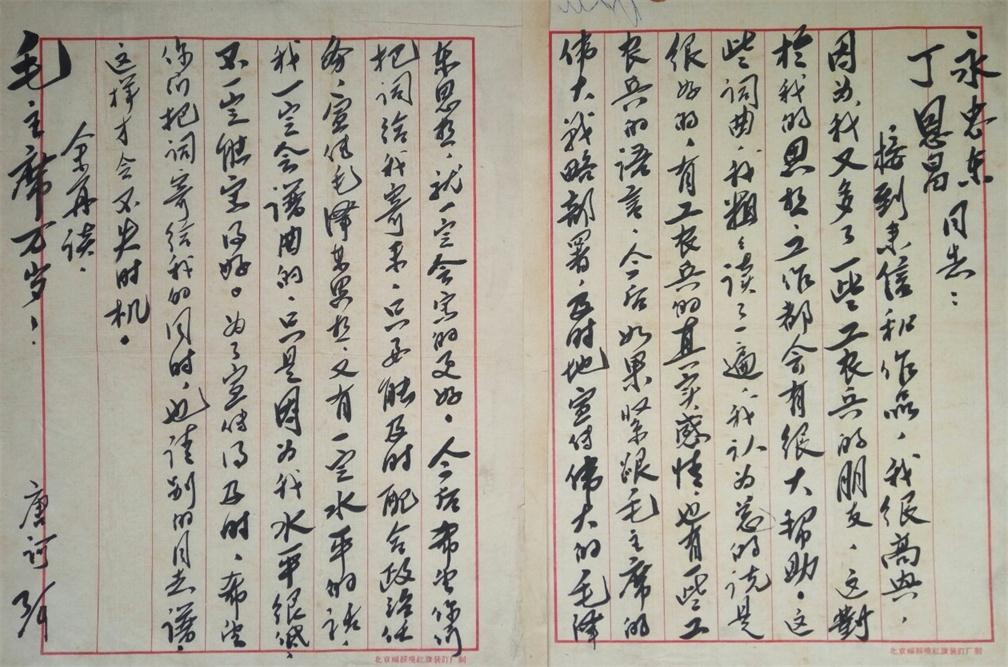 永忠东
丁恩昌 同志:
接到来信和作品,我很高兴,
因为,我又多了一些工农兵的朋友,这对
于我的思想,工作都会有很大帮助。这
些词曲,我粗々读了一遍,我认为总的说是
很好的,有工农兵的真实感情,也有一些工
农兵的语言,今后如果紧跟毛主席的
伟大战略部署,及时地宣传伟大的毛泽
东思想,就一定会写的更好。今后希望你们
把词给我寄来,只要能及时配合政治任
务,宣传毛泽东思想,又有一定水平的话,
我一定会谱曲的,只是因为我水平很低,
不一定能写得好。为了宣传得及时,希望
你们把词寄给我的同时,也请别的同志谱,
这样才会不失时机。
余再谈.
毛主席万岁!
唐诃
北京